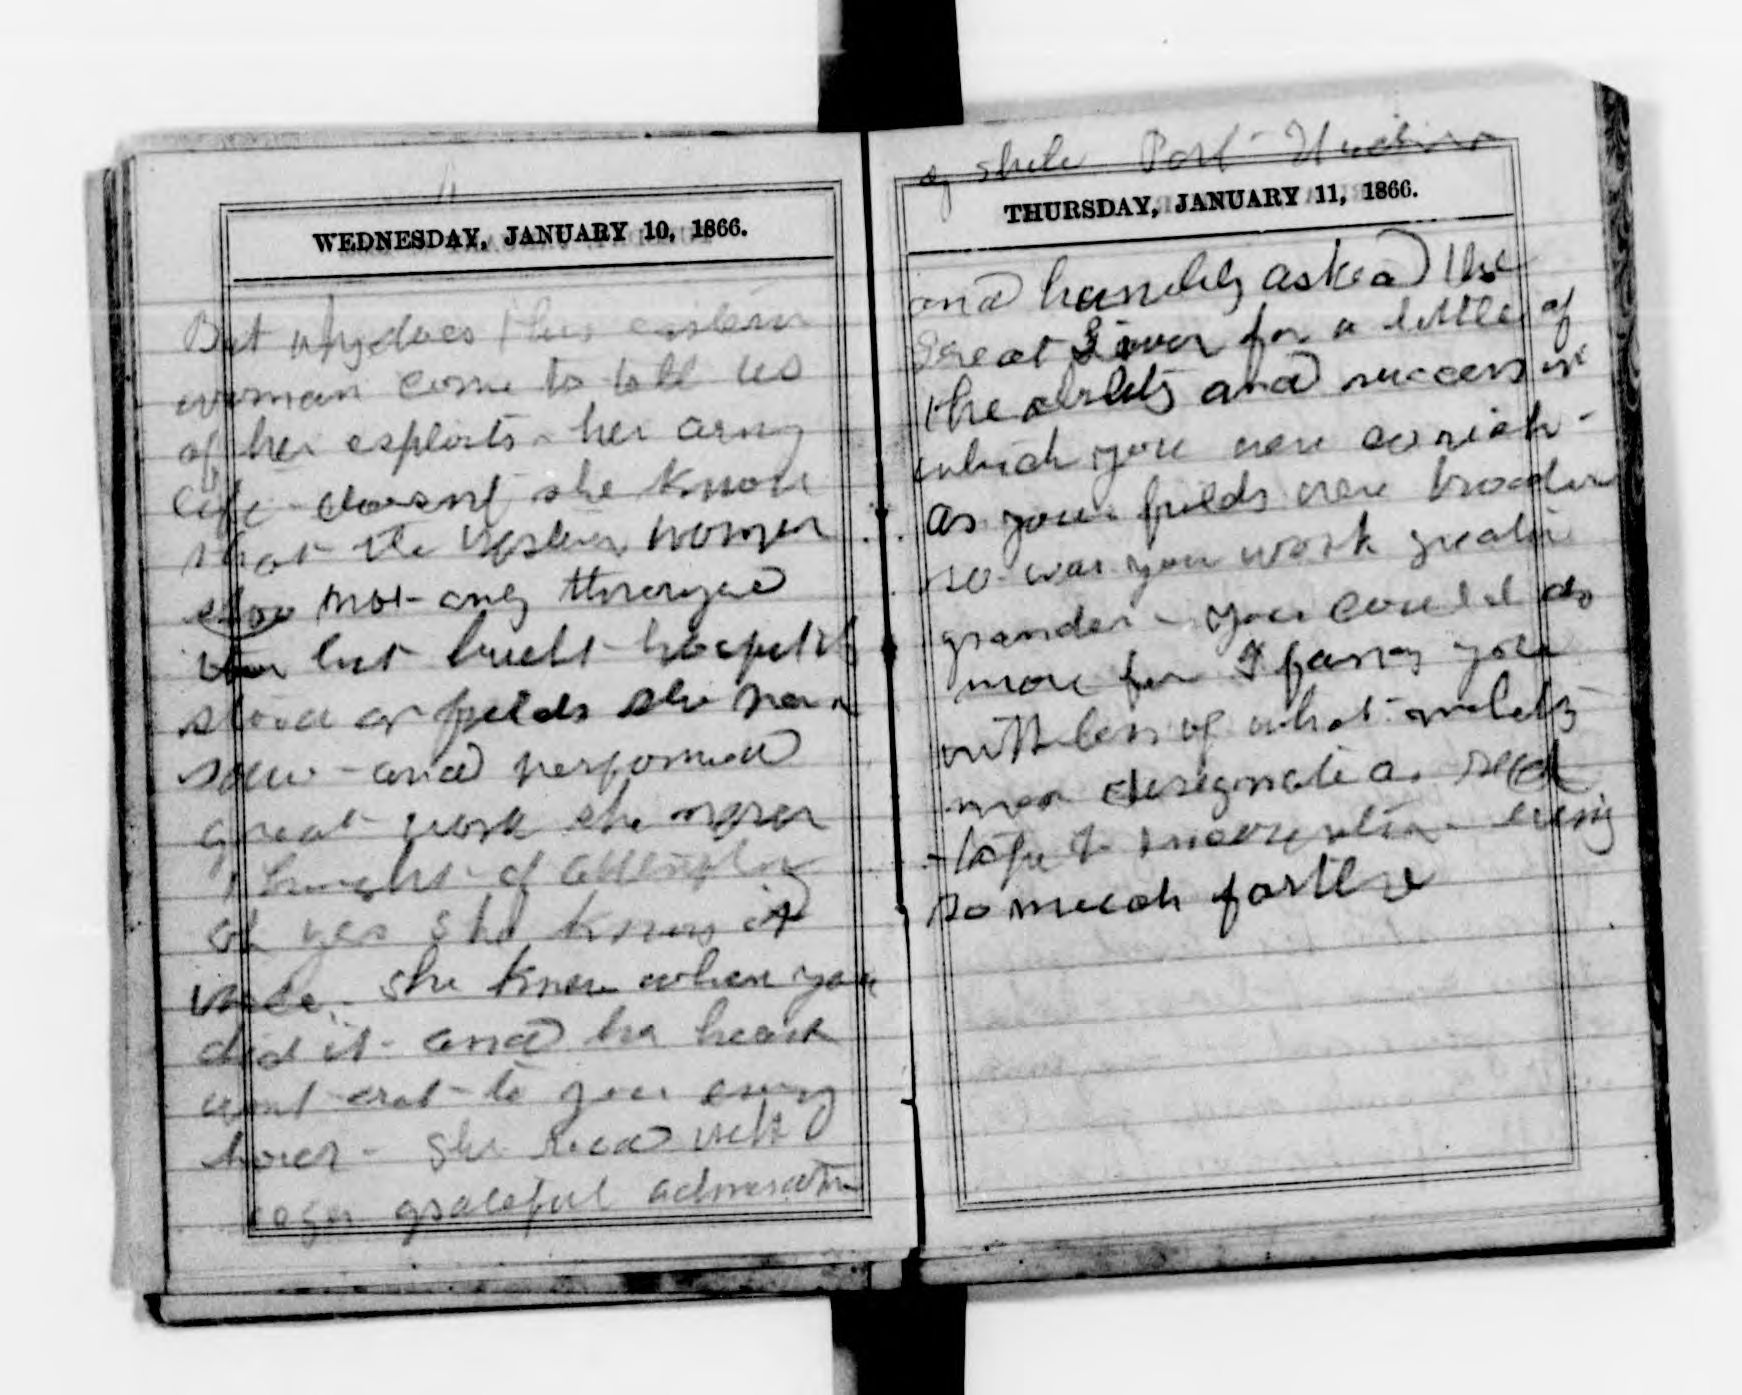 WEDNESDAY, JANUARY 10, 1866.
But why does this eastern
woman come to tell us
of her exploits - her army
life - doesnt she know
that the Western women
not only
but built hospitals
stood on fields she never
saw - and performed
great work she never
thought of attempting
oh yes she knows it
well. she knew when you
did it - and her heart
went out to you every
hour - she read with
eager grateful admiration
of Port Hudson
THURSDAY, JANUARY 11, 1866.
and humbly asked the
great Giver for a little of
the ability and success in
which you were so rich -
as your fields were broader
so was your work greater
grander - you could do
more for I fancy you
met less of what
men designate as red
tape &
so much farther